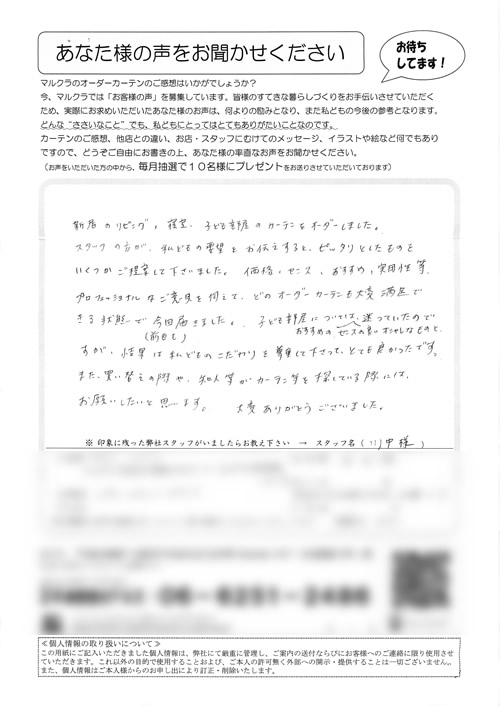 あなた様の声をお聞かせください
お待ち
してます！
マルクラのオーダーカーテンのご感想はいかがでしょうか？
今、マルクラでは「お客様の声」を募集しています。皆様のすてきな暮らしづくりをお手伝いさせていただく
ため、実際にお求めいただいたあなた様のお声は、何よりの励みとなり、また私どもの今後の参考となります。
どんな“ささいなこと”でも、私どもにとってはとてもありがたいことなのです。
カーテンのご感想、他店との違い、お店・スタッフにむけてのメッセージ、イラストや絵など何でもあり
ですので、どうぞご自由にお書きの上、あなた様の率直なお声をお聞かせください。
（お声をいただいた方の中から、毎月抽選で１０名様にプレゼントをお送りさせていただいております）
新居のリビング、寝室、子ども部屋のカーテンをオーダーしました。
スタッフの方が、私どもの要望をお伝えすると、ピッタリとしたものを
いくつかご提案して下さいました。価格、センス、おすすめ、実用性等、
プロフェッショナルなご意見を伺えて、どのオーダーカーテンも大変満足で
きる状態で今回届きました。子ども部屋については、迷っていたので
(前日も)
おすすめの、センスの良いオシャレなものと、
すが、結果は私どものこだわりを尊重して下さって、とても良かったです。
また、買い替えの際や、知人等がカーテン等を探している際には、
お願いしたいと思います。 大変ありがとうございました。
※ 印象に残った弊社スタッフがいましたらお教え下さい → スタッフ名（川中様）
06-6251-2486
≪個人情報の取り扱いについて≫
この用紙にご記入いただきました個人情報は、弊社にて厳重に管理し、ご案内の送付ならびにお客様へのご連絡に限り使用させ
ていただきます。これ以外の目的で使用することおよび、ご本人の許可無く外部への開示・提供することは一切ございません。
また、個人情報はご本人様からのお申し出により訂正・削除いたします。